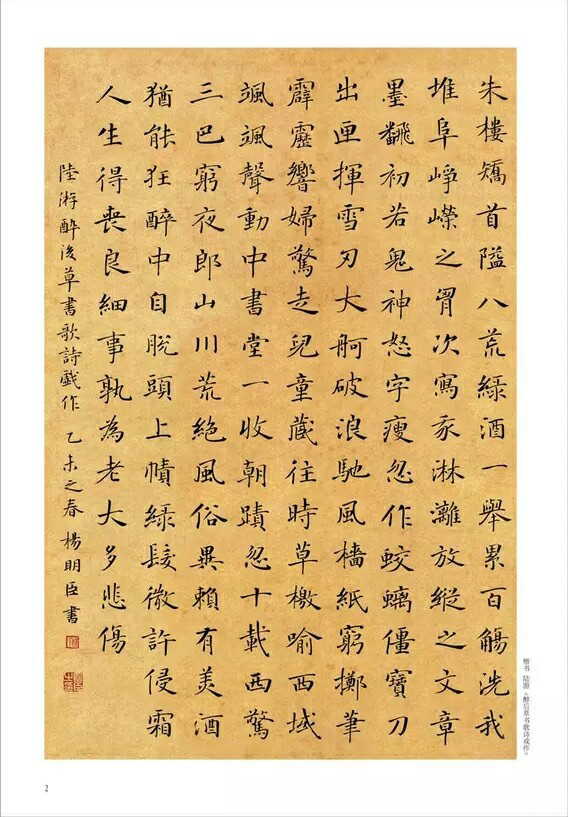 朱樓矯首隘八荒綠酒一舉累百觴洗我
堆阜崢嶸之胷次寫淋漓放縱之文章
墨飜初若鬼神怒字瘦忽作蛟螭僵寶刀
出匣揮雪刃大舸破浪馳風檣紙窮擲筆
霹靂響婦驚走兒童藏往時草檄喻西域
颯颯聲動中書堂一收朝蹟忽十載西驚
三巴窮夜郎山川荒絕風俗異賴有美酒
猶能狂醉中自脫頭上幘綠髮微許侵霜
人生得喪良細事孰為老大多悲傷
陸游醉後草書歌詩戲作 乙未之春 楊明臣書
楷书 陆游《醉后草书歌诗戏作》
2